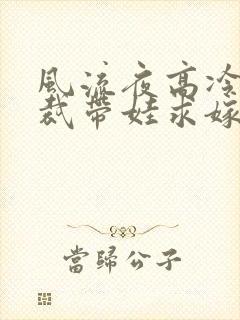 風流夜高冷
裁帶娃求嫁
當歸公子